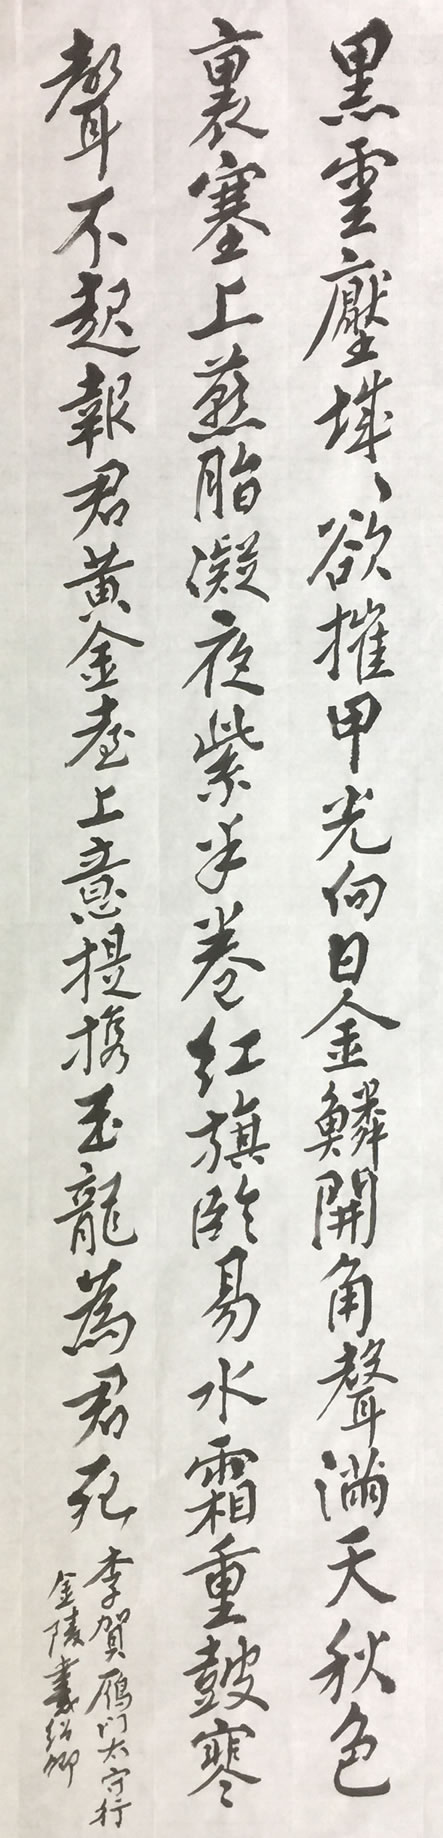 黑雲壓城〻欲摧甲光向日金鱗開角聲滿天秋色
裏塞上燕脂凝夜紫半卷紅旗臨易水霜重鼓寒
聲不起報君黃金臺上意提携玉龍為君死
李賀雁門太守行
金陵書紹卿